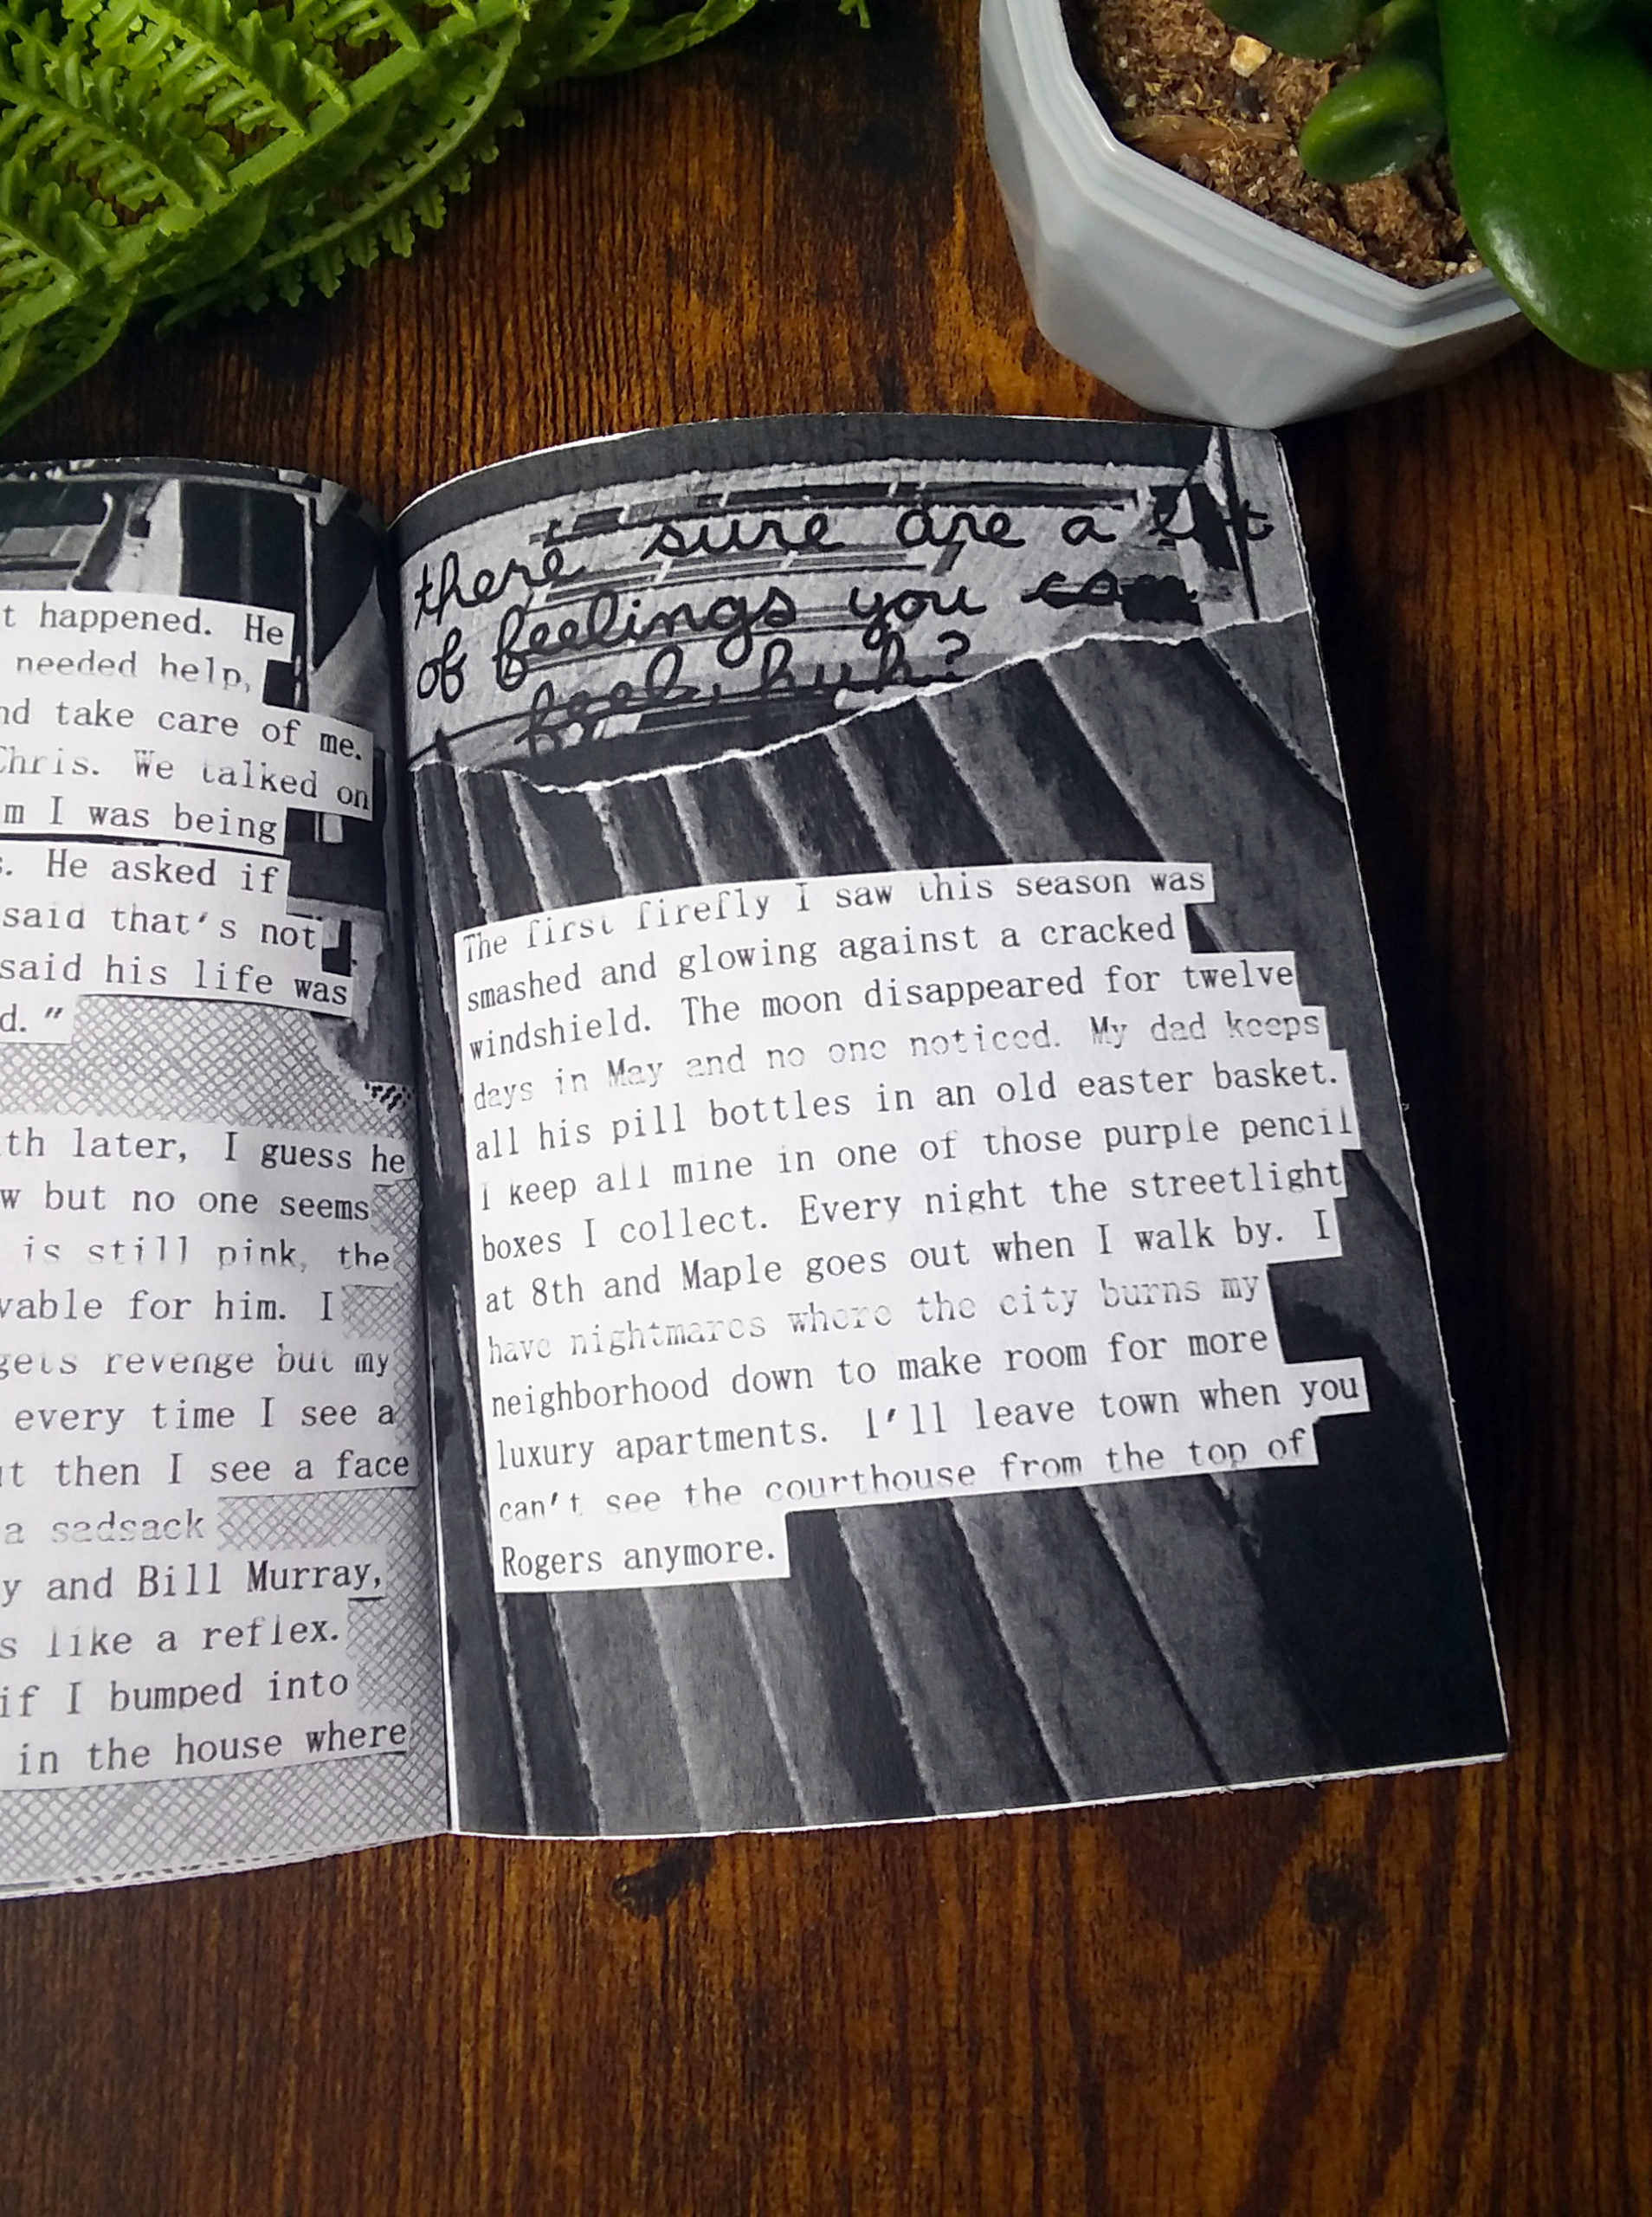 t happened. He
needed help,
nd take care of me.
Chris. We talked on
m I was being
s. He asked if
said that's not
said his life was
d."
th later, I guess he
w but no one seems
is still pink, the
vable for him. I
gets revenge but my
every time I see a
ut then I see a face
a sadsack
y and Bill Murray,
s like a reflex.
if I bumped into
in the house where
there sure are a lot
of feelings you can
feel, huh?
The first firefly I saw this season was
smashed and glowing against a cracked
windshield. The moon disappeared for twelve
days in May and no one noticed. My dad keeps
all his pill bottles in an old easter basket.
I keep all mine in one of those purple pencil
boxes I collect. Every night the streetlight
at 8th and Maple goes out when I walk by. I
have nightmares where the city burns my
neighborhood down to make room for more
luxury apartments. I'll leave town when you
can't see the courthouse from the top of
Rogers anymore.